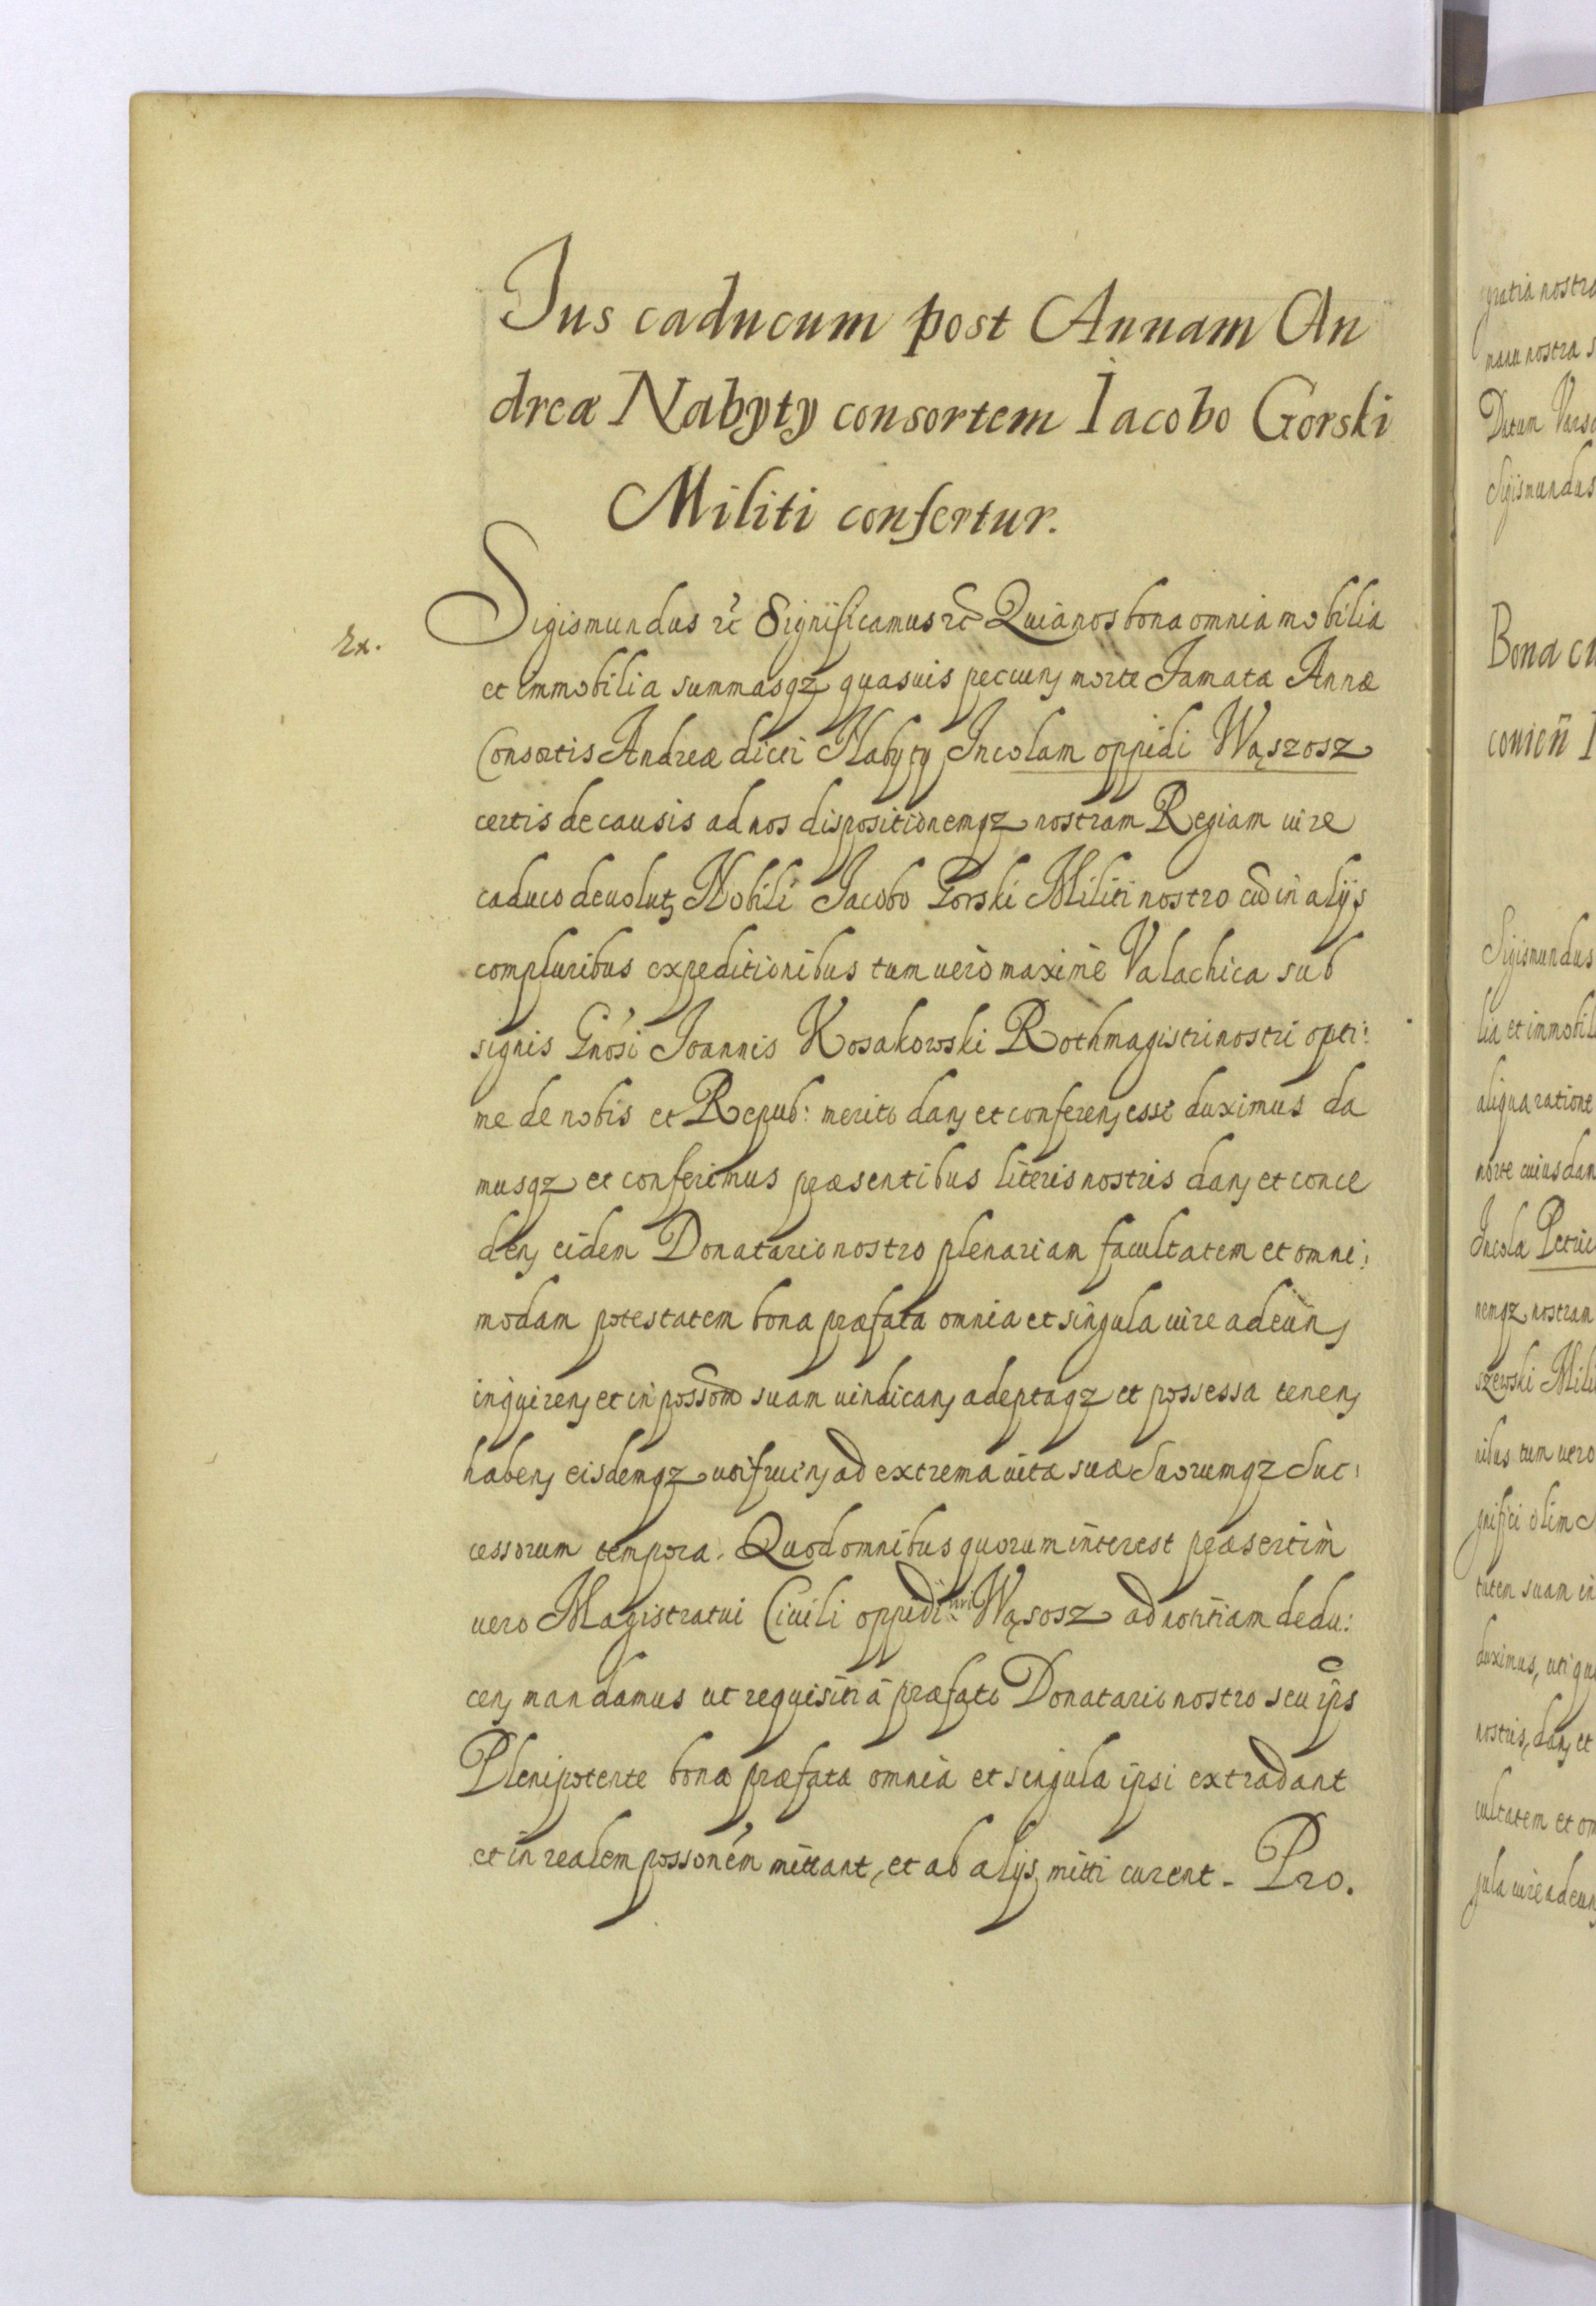 Ius caducum post Annam An
dreæ Nabyty consortem Iacobo Gorski
Militi confertur.
Ex.
Sigismundus etc̃ Significamus etc̃ Quia nos bona omnia mobilia
et immobilia summasqz quasuis pecun̄ morte Famatæ Annæ
Consortis Andreæ dicti Nabyty Incolam oppidi Wąszosz
certis de causis ad nos dispositionemqz nostram Regiam iure
caduco deuolutȝ Nobili Iacobo Gorski Militi nostro cũ in alijs
compluribus expeditionibus tum uerò maximè Valachica sub
signis Gnosi Ioannis Kosakowski Rothmagistri nostri opti:
me de nobis et Repub: merito danȝ et conferenȝ esse duximus da
musqz et conferimus præsentibus literis nostris danȝ et conce
denȝ eidem Donatario nostro plenariam facultatem et omni:
modam potestatem bona præfata omnia et singula iure adeunȝ
inquirenȝ et in posso͠m suam uindicanȝ adeptaqz et possessa tenenȝ
habenȝ eisdemqz utifruenȝ ad extrema uitæ suæ Suorumqz Suc:
cessorum tempora. Quod omnibus quorum interest præsertim
uero Magistratui Ciuili oppidi nri Wąsosz ad notitiam dedu:
cenȝ mandamus ut requisiti à præfato Donatario nostro seu ip̃s
Plenipotente bona præfata omnia et singula ipsi extradant
et in realem possonem mittant, et ab alijs mitti curent. Pro.
gratia nostra
manu nostra
Datum
Sigismundus
Bona
Sigismundus
lia et immobil
aliqua ratione
morte cuiusdam
Incola
nemqz nostram
szewski
nibus tum uero
gnifici olim
tutem suam in
duximus, uti
nostris, danȝ et
cultatem et om
gula iure adeunȝ